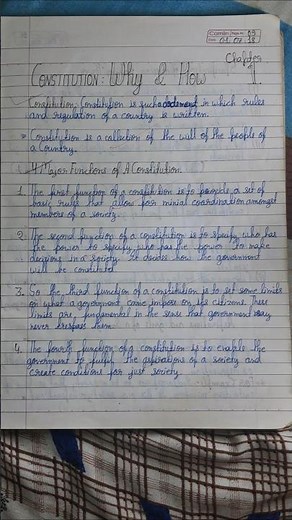 Camlin Page 03
Date 01 07 18
Chapter
1.
CONSTITUTION: Why & How
Constitution: Constitution is such document in which rules
and regulation of a country is written.
Constitution is a collection of the will of the people of
a Country.
4 Major Functions of A Constitution
1. The first function of a constitution is to provide a set of
basic rules that allow for minial coordination amongst
members of a society.
2. The second function of a constitution is to specify who has
the power to specify who has the power to make
decisions in a society. It decides how the government
will be constituted.
3. So the third function of a constitution is to set some limits
on what a government can impose on its citizens. These
limits are fundamental in the sense that government may
never trespass them.
4. The fourth function of a constitution is to enable the
government to fulfil the aspirations of a society and
create conditions for just society.